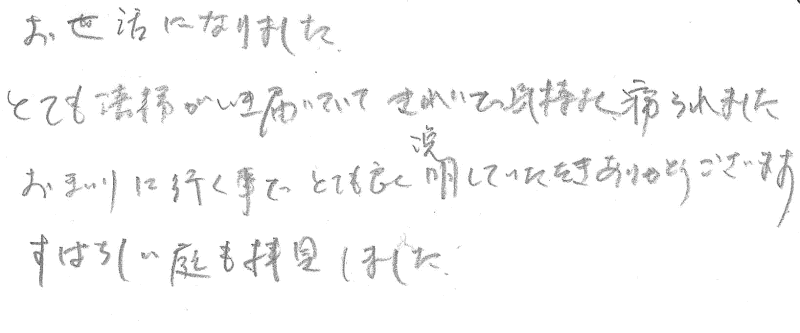 お世話になりました。
とても清掃がいき届いていて きれいで、気持よく、寝られました
おまいりに行く事で、とても良く説明していただきありがとうございます
すばらしい庭も拝見しました。